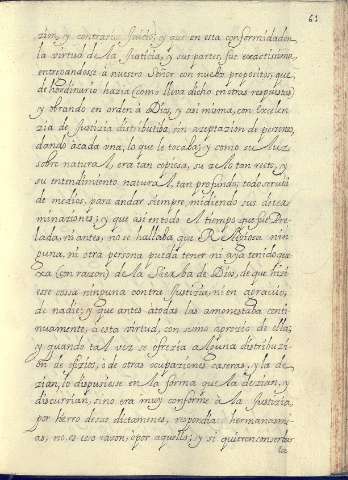 61
zion, y contrario juicio; y que en esta conformidad en
la virtud de la Justicia, y sus partes, fue exactissima,
entregandosse a nuestro Señor con nuebo proposito, que
de hordinario hazia (como lleva dicho en otras respuestas)
y obrando en orden à Dios, y asi misma, con excelen-
zia de Justizia distributiba, sin azeptazion de personas,
dando acada vna, lo que le tocaba; y como su luz
sobre natural, era tan copiosa, su zelo tan recto, y
su entendimiento natural, tan profundo; todo
de medios, para andar siempre midiendo sus deter-
minaziones; y que asi en todo el tiempo que fue Pre-
lada, ni antes, no se hallaba que Religiosa nin-
guna, ni otra persona pueda tener ni aya tenido que
xa (con razon) de la Sierba de Dios, de que hizi-
esse cossa ninguna contra Justizia, ni en agravio,
de nadie; y que antes atodas las amonestaba conti-
nuamente, à esta virtud, con sumo aprezio de ella;
y quando tal vez se ofrezia alguna distribuzi-
on de ofizios, i de otras ocupaziones caseras, y la de-
zian, lo dispusiesse en la forma que la dezian, y
discurrian, sino era muy conforme à la Justizia,
por hierro de sus dictamenes, respondia: hermanas mi-
as, no es eso razon, ò por aquello; y si quieren conserbar
la